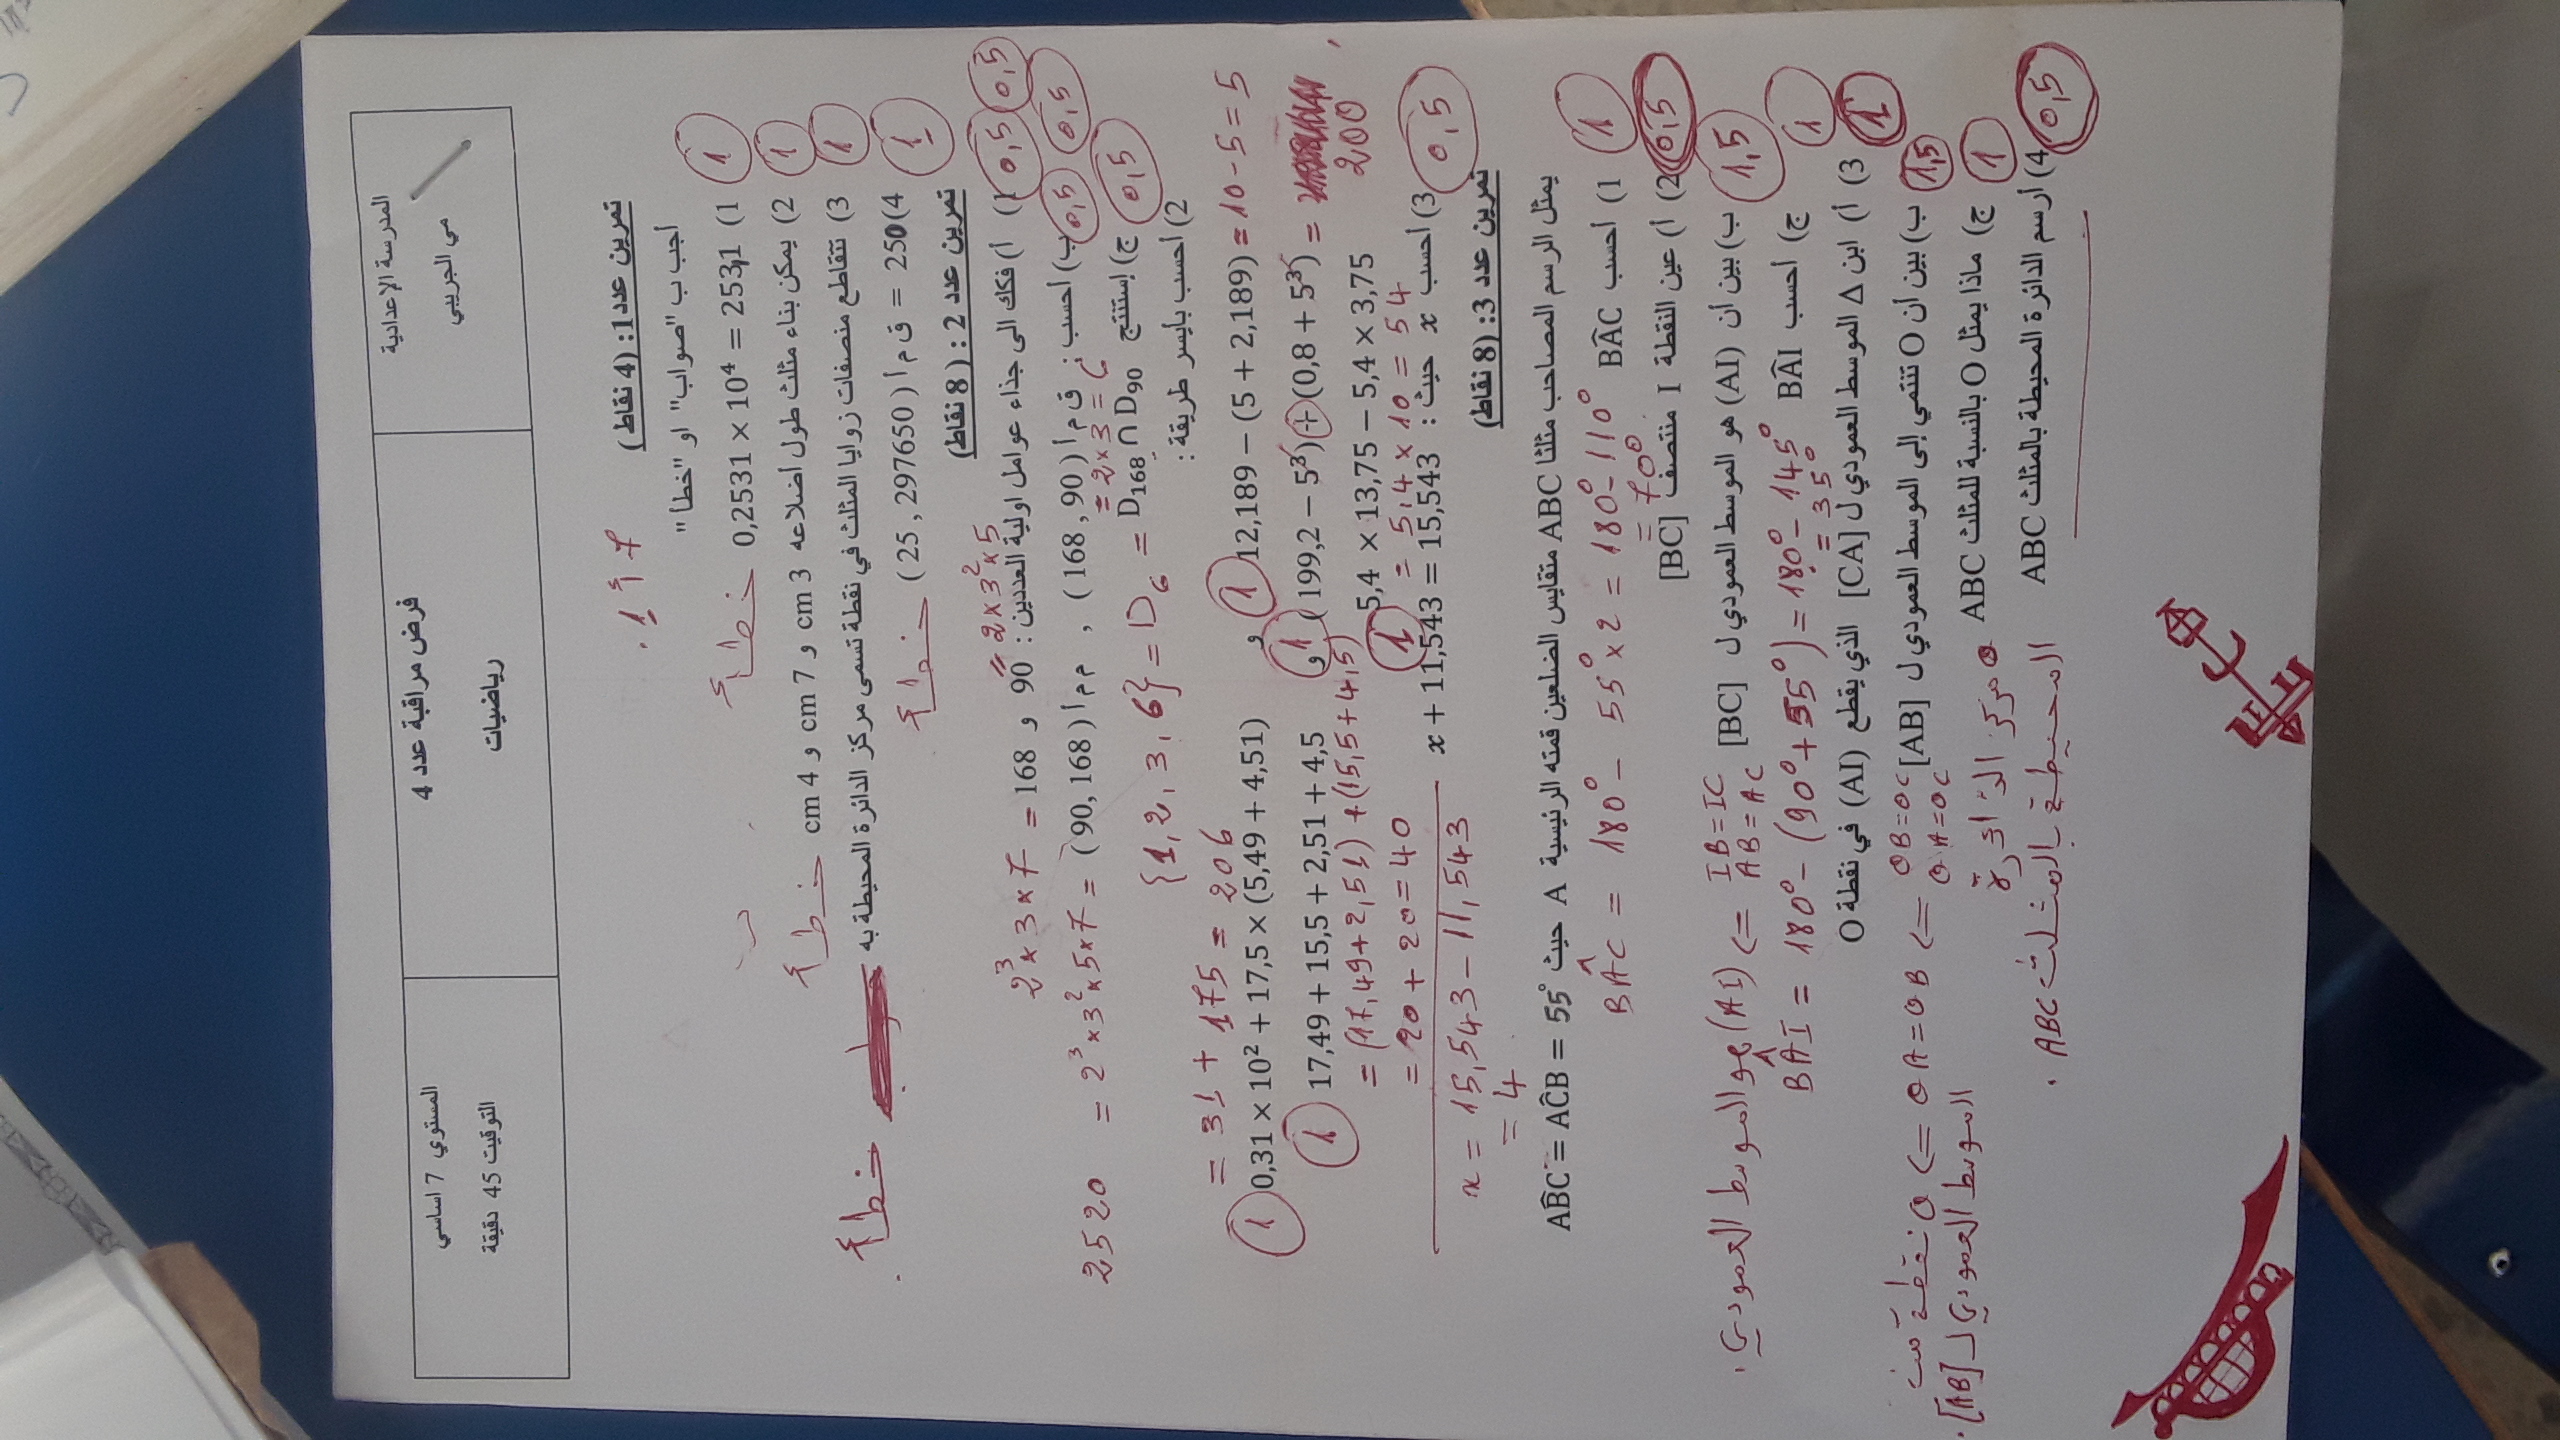 المدرسة الإعدادية
مي الجريبي
فرض مراقبة عدد 4
رياضيات
المستوي 7 اساسي
التوقيت 45 دقيقة
7 أ 1
تمرين عدد 1: (4 نقاط)
أجب ب "صواب" او "خطأ"
1) 0,2531 × 10⁴ = 253,1 خطأ 1
2) يمكن بناء مثلث طول أضلاعه 3 cm و 7 cm و 4 cm خطأ 1
3) تتقاطع منصفات زوايا المثلث في نقطة تسمى مركز الدائرة المحيطة به خطأ 1
4) 250 = ق م أ (25 , 297650) خطأ 1
تمرين عدد 2: (8 نقاط)
1) أ) فكك الى جذاء عوامل اولية العددين: 90 و 168 0,5 0,5
= 2×3²×5
2³×3×7 =
ب) أحسب: ق م أ (168, 90) , م م أ (90, 168) 0,5 0,5
= 2×3 = 6
= 2³×3²×5×7 = 2520
ج) إستنتج D₁₆₈ ∩ D₉₀ = D₆ = {1, 2, 3, 6} 0,5
2) أحسب بأيسر طريقة:
12,189 − (5 + 2,189) = 10 − 5 = 5 1
و 0,31 × 10² + 17,5 × (5,49 + 4,51) 1
= 31 + 175 = 206
(199,2 − 5³) + (0,8 + 5³) = 200 1
و 17,49 + 15,5 + 2,51 + 4,5 1
= (17,49 + 2,51) + (15,5 + 4,5)
= 20 + 20 = 40
5,4 × 13,75 − 5,4 × 3,75 1
= 5,4 × 10 = 54
3) أحسب x حيث: x + 11,543 = 15,543 0,5
x = 15,543 − 11,543
= 4
تمرين عدد 3: (8 نقاط)
يمثل الرسم المصاحب مثلثا ABC متقايس الضلعين قمته الرئيسية A حيث ABC = ACB = 55°
1) أحسب BAC 1
BAC = 180° − 55° × 2 = 180° − 110°
= 70°
2) أ) عين النقطة I منتصف [BC] 0,5
ب) بين أن (AI) هو الموسط العمودي ل [BC] 1,5
IB = IC
AB = AC
=> (AI) هو الموسط العمودي.
ج) أحسب BAI 1
BAI = 180° − (90° + 55°) = 180° − 145°
= 35°
3) أ) ابن Δ الموسط العمودي ل [CA] الذي يقطع (AI) في نقطة O 1
ب) بين أن O تنتمي إلى الموسط العمودي ل [AB] 1,5
OB = OC
OA = OC
=> OA = OB => O نقطة من
الموسط العمودي ل [AB].
ج) ماذا يمثل O بالنسبة للمثلث ABC 1
O مركز الدائرة
المحيطة بالمثلث ABC.
4) ارسم الدائرة المحيطة بالمثلث ABC 0,5